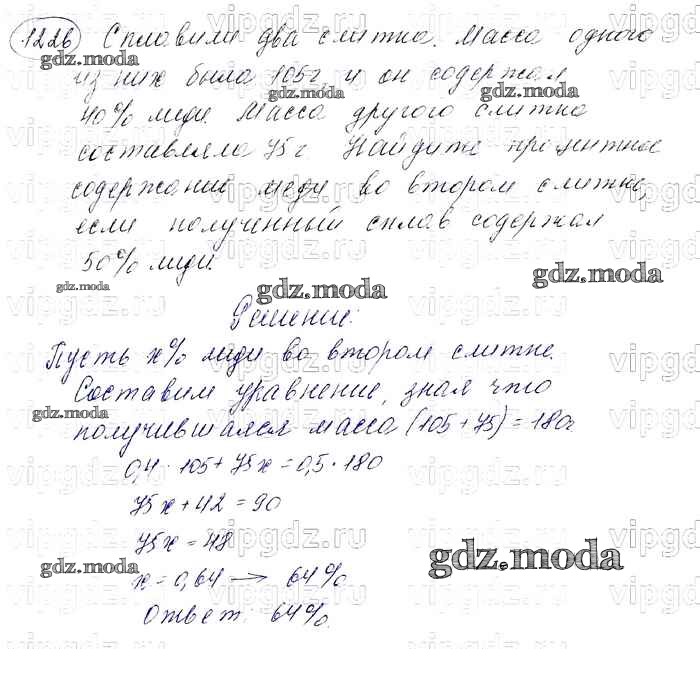 1226 Сплавили два слитка. Масса одного
из них была 105г и он содержал
40% меди Масса другого слитка
составляла 75г Найдите процентное
содержание меди во втором слитке,
если полученный сплав содержал
50% меди.
Решение:
Пусть x% меди во втором слитке.
Составим уравнение, зная что
получившаяся масса (105+75)=180г
0,4·105+75x=0,5·180
75x+42=90
75x=48
x=0,64 → 64%
Ответ. 64%.
gdz.moda
gdz.moda
gdz.moda
gdz.moda
gdz.moda
gdz.moda
gdz.moda
gdz.moda
gdz.moda
vipgdz.ru